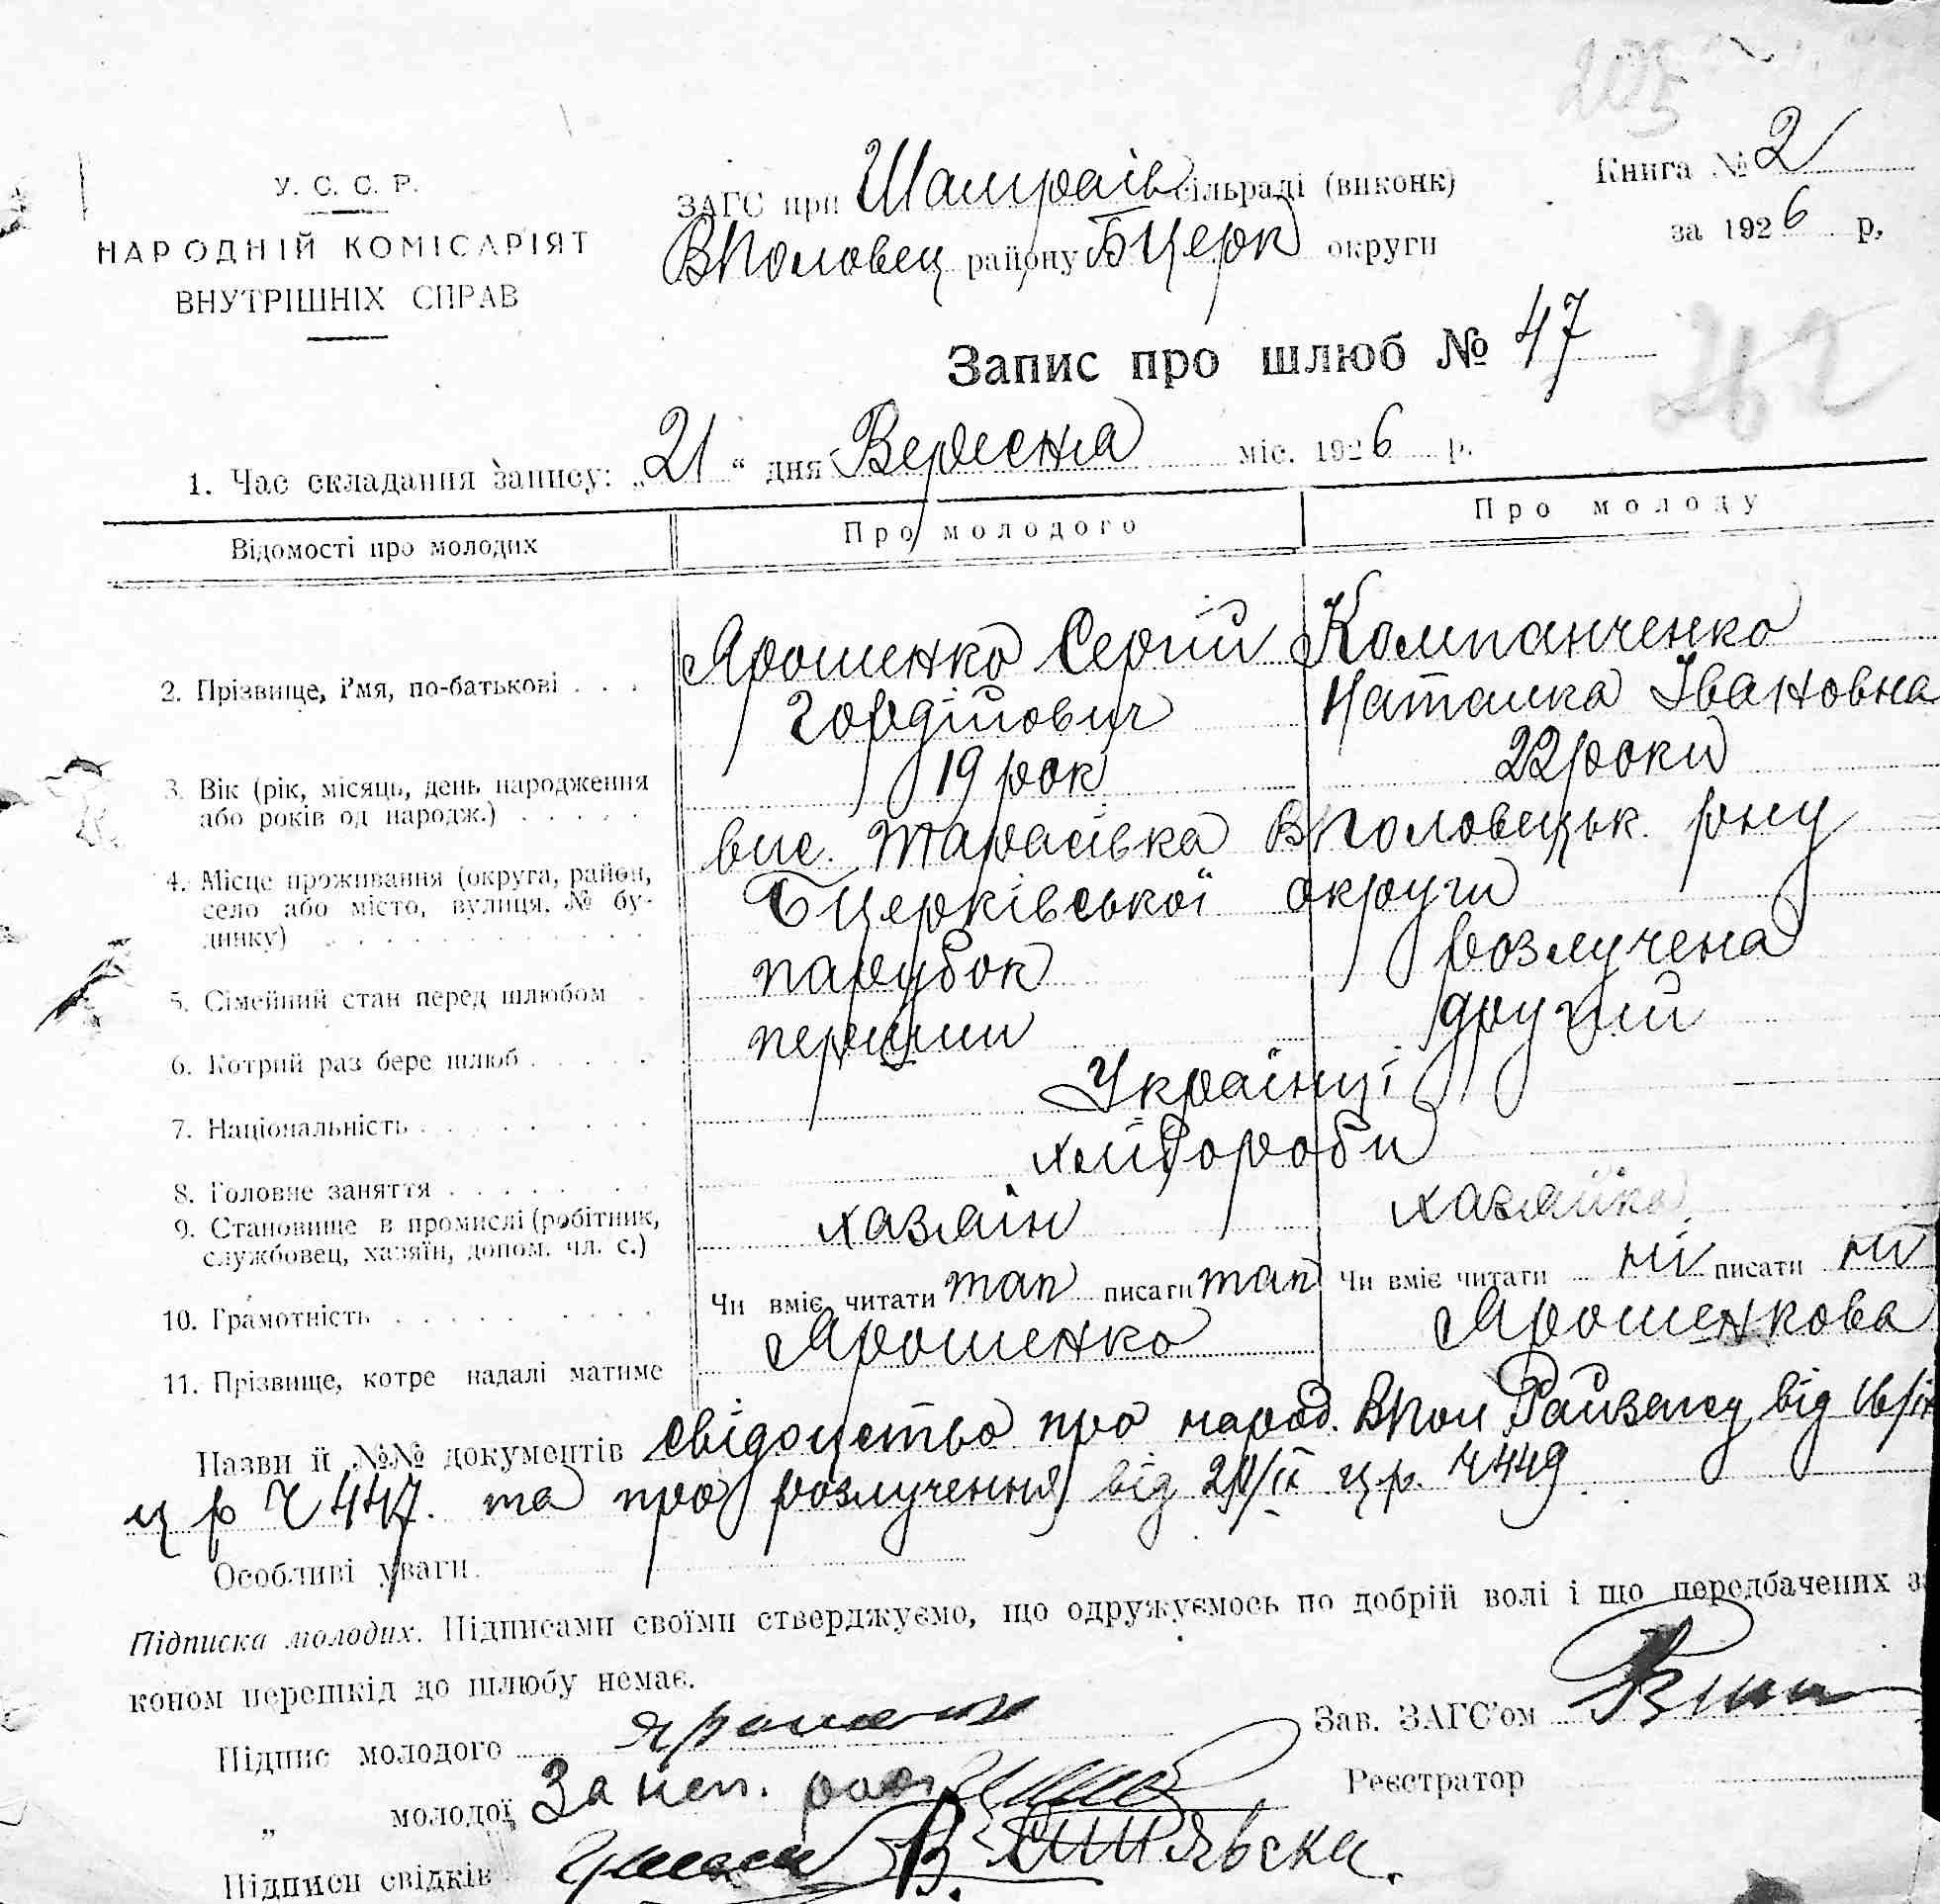 205
У. С. С. Р.
НАРОДНІЙ КОМІСАРІЯТ
ВНУТРІШНІХ СПРАВ
ЗАГС при Шамраїв сільраді (виконк)
ВПоловец району БЦерк округи
Книга № 2
за 1926 р,
Запис про шлюб № 47
1. Час складання запису: „21“ дня Вересня міс. 1926 р.
Відомості про молодих
Про молодого
Про молоду
2. Прізвище, і'мя, по-батькові . . .
Ярошенко Сергій
Гордійович
Компанченко
Наталка Івановна
3. Вік (рік, місяць, день народження
або років од народж.) . . . . .
19 рок
22 роки
4. Місце проживання (округа, район,
село або місто, вулиця, № бу-
динку)
вис. Тарасівка ВПоловецьк. рну
БЦерківської округи
5. Сімейний стан перед шлюбом
парубок
розлучена
6. Котрий раз бере шлюб . . . . .
перший
другий
7. Національність
Українці
8. Головне заняття
хліброби
9. Становище в промислі (робітник,
службовец, хазяїн, допом. чл. с.)
хазяін
хазяйка
10. Грамотність
Чи вміє читати так писати так
Чи вміє читати ні писати ні
11. Прізвище, котре надалі матиме
Ярошенко
Ярошенкова
Назви й №№ документів свідоцтво про народ. ВПол Райзагсу від
ц р Ч 447. та про розлучення від ц.р. Ч 449
Особливі уваги
Підписка молодих. Підписами своїми стверджуємо, що одружуємось по добрій волі і що передбачених за
коном перешкід до шлюбу немає.
Підпис молодого
Зав. ЗАГС'ом
„ молодої За неп.
Реєстратор
Підписи свідків